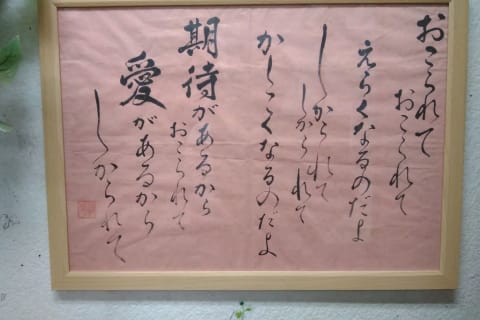 おこられて
おこられて
えらくなるのだよ
しかられて
しかられて
かしこくなるのだよ
期待があるから
おこられて
愛があるから
しかられて